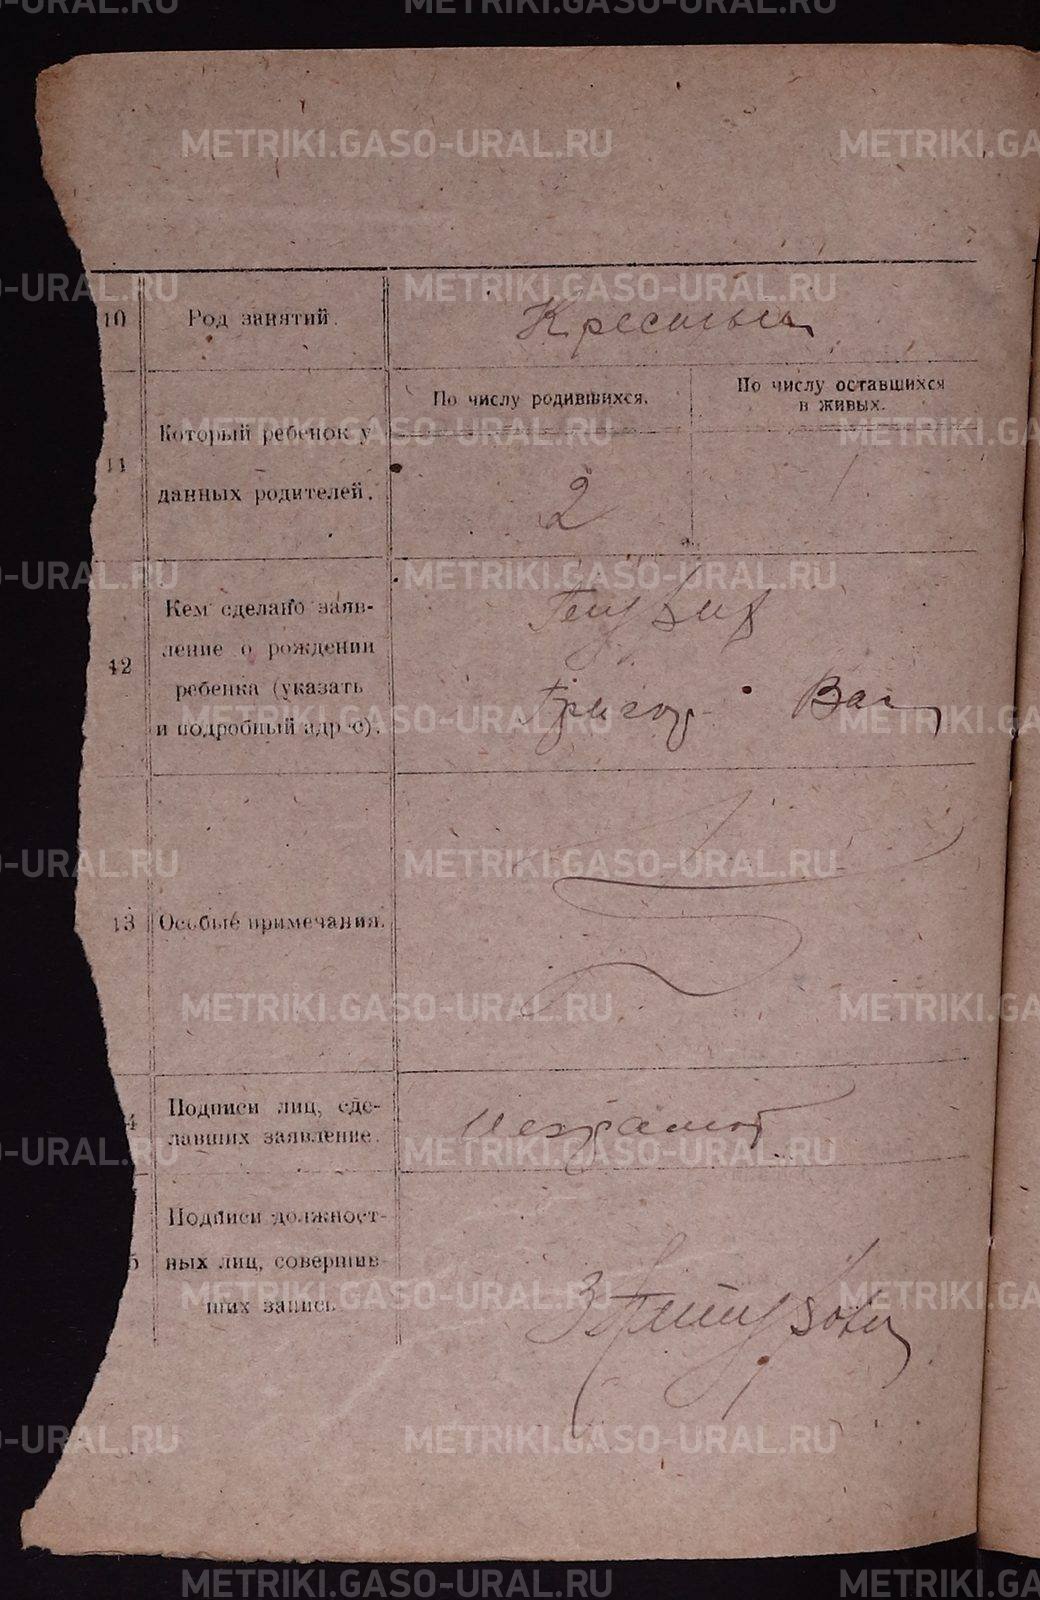 METRIKI.GASO-URAL.RU
10 Род занятий. Крестьян
11 Который ребенок у данных родителей.
По числу родившихся. По числу оставшихся
в живых.
2 1
12 Кем сделано заяв-
ление о рождении
ребенка (указать
и подробный адр с).
Григор Вас
13 Особые примечания.
4 Подписи лиц, сде-
лавших заявление. Неграмот
5 Подписи должност-
ных лиц, совершив-
ших запись